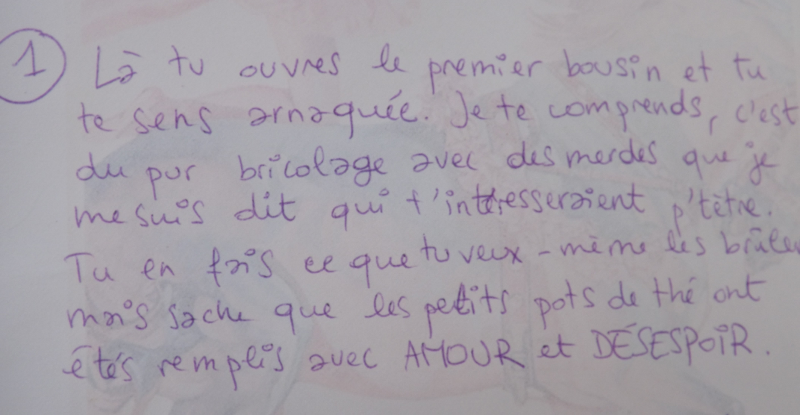 1 Là tu ouvres le premier bousin et tu
te sens arnaquée. Je te comprends, c'est
du pur bricolage avec des merdes que je
me suis dit qui t'intéresseraient p'têtre.
Tu en fais ce que tu veux - même les brûler
mais sache que les petits pots de thé ont
étés remplis avec AMOUR et DÉSESPOIR.